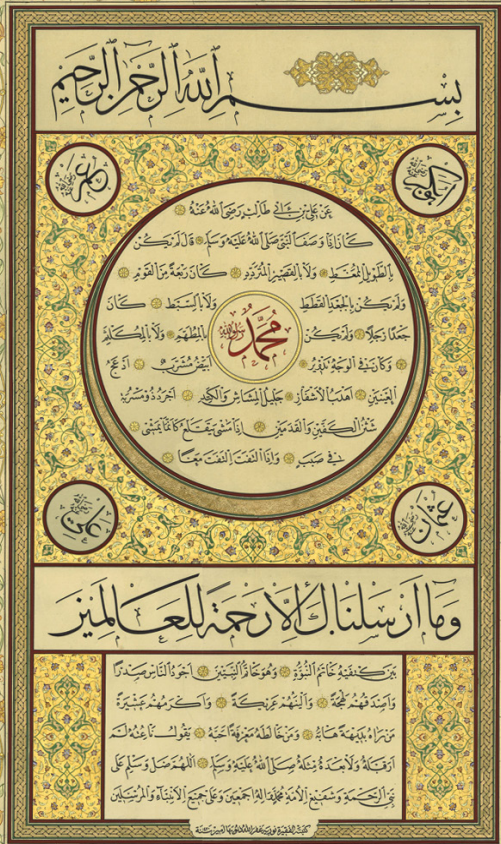 بِسْمِ اللهِ الرَّحْمٰنِ الرَّحِيمِ
ابوبكر رضي الله عنه
عمر رضي الله عنه
عَنْ عَلِيِّ بْنِ اَبِي طَالِبٍ رَضِيَ اللهُ عَنْهُ
كَانَ اِذَا وَصَفَ النَّبِيَّ صَلَّى اللهُ عَلَيْهِ وَسَلَّمَ قَالَ لَمْ يَكُنْ
بِالطَّوِيلِ الْمُمَغَّطِ وَلَا بِالْقَصِيرِ الْمُتَرَدِّدِ كَانَ رَبْعَةً مِنَ الْقَوْمِ
وَلَمْ يَكُنْ بِالْجَعْدِ الْقَطَطِ وَلَا بِالسَّبِطِ كَانَ
جَعْدًا رَجِلًا وَلَمْ يَكُنْ بِالْمُطَهَّمِ وَلَا بِالْمُكَلْثَمِ
مُحَمَّد
وَكَانَ فِي الْوَجْهِ تَدْوِيرٌ اَبْيَضُ مُشْرَبٌ اَدْعَجُ
الْعَيْنَيْنِ اَهْدَبُ الْاَشْفَارِ جَلِيلُ الْمُشَاشِ وَالْكَتَدِ اَجْرَدُ ذُو مَسْرُبَةٍ
شَثْنُ الْكَفَّيْنِ وَالْقَدَمَيْنِ اِذَا مَشَى يَتَقَلَّعُ كَاَنَّمَا يَمْشِي
فِي صَبَبٍ وَاِذَا الْتَفَتَ الْتَفَتَ مَعًا
عثمان رضي الله عنه
علي رضي الله عنه
وَمَا اَرْسَلْنَاكَ اِلَّا رَحْمَةً لِلْعَالَمِينَ
بَيْنَ كَتِفَيْهِ خَاتَمُ النُّبُوَّةِ وَهُوَ خَاتَمُ النَّبِيِّينَ اَجْوَدُ النَّاسِ صَدْرًا
وَاَصْدَقُهُمْ لَهْجَةً وَاَلْيَنُهُمْ عَرِيكَةً وَاَكْرَمُهُمْ عَشِيرَةً
مَنْ رَآهُ بَدِيهَةً هَابَهُ وَمَنْ خَالَطَهُ مَعْرِفَةً اَحَبَّهُ يَقُولُ نَاعِتُهُ لَمْ
اَرَ قَبْلَهُ وَلَا بَعْدَهُ مِثْلَهُ صَلَّى اللهُ عَلَيْهِ وَسَلَّمَ اَللّٰهُمَّ صَلِّ وَسَلِّمْ عَلَى
نَبِيِّ الرَّحْمَةِ وَشَفِيعِ الْاُمَّةِ مُحَمَّدٍ وَآلِهِ اَجْمَعِينَ وَعَلَى جَمِيعِ الْاَنْبِيَاءِ وَالْمُرْسَلِينَ